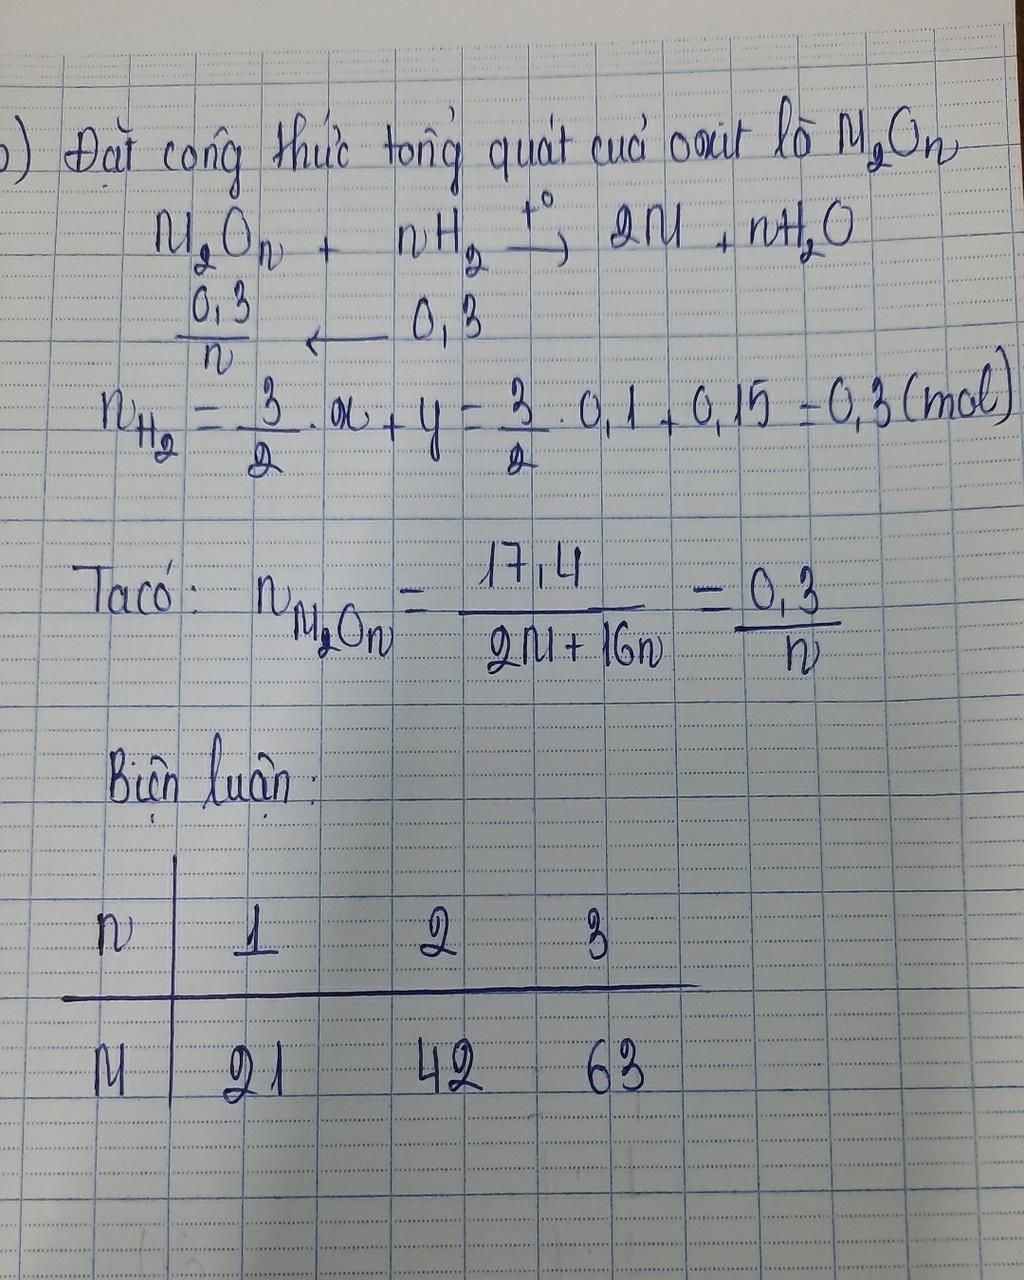 b) Đặt công thức tổng quát của oxit là M₂Oₙ
M₂Oₙ + nH₂ t° → 2M + nH₂O
0,3/n ← 0,3
n_H₂ = 3/2 . x + y = 3/2 . 0,1 + 0,15 = 0,3 (mol)
Ta có: n_M₂Oₙ = 17,4/(2M + 16n) = 0,3/n
Biện luận:
n | 1 2 3
M | 21 42 63